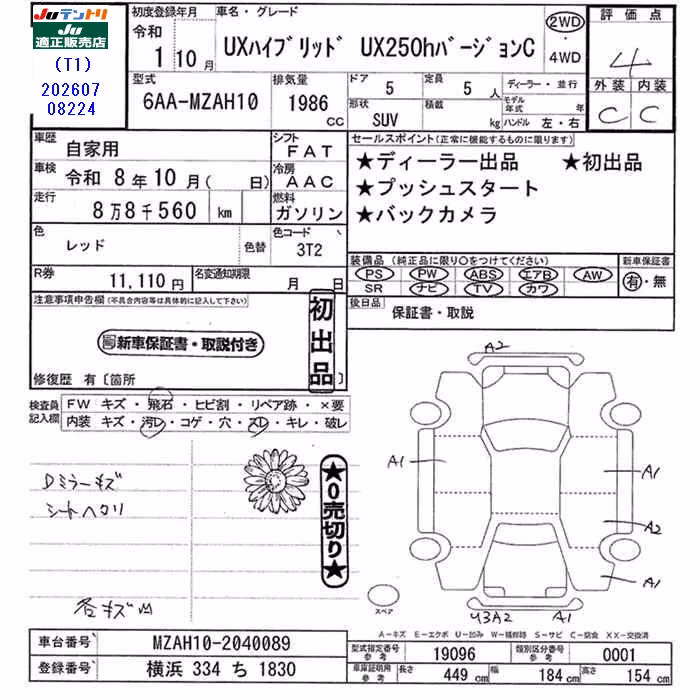 Juテントリ
Ju
適正販売店
(T1)
202607
08224
初度登録年月
令和
1 10 月
車名・グレード
UXハイブリッド UX250hバージョンC
2WD
・
4WD
評価点
4
外装 内装
C C
型式
6AA-MZAH10
排気量
1986 CC
ドア
5
定員
5 人
ディーラー・並行
形状
SUV
積載
kg
モデル年式 年
ハンドル 左・右
車歴
自家用
シフト
FAT
車検
令和 8年 10月( 日)
冷房
AAC
走行
8万8千560 km
燃料
ガソリン
色
レッド
色替
色コード
3T2
R券
11,110円
名変通知期限
月 日
セールスポイント(正常に機能するものに限ります)
★ディーラー出品 ★初出品
★プッシュスタート
★バックカメラ
装備品 (純正品に限り〇をつけてください)
PS PW ABS エアB AW
SR ナビ TV カワ
新車保証書
有・無
後日品
保証書・取説
注意事項申告欄(不具合内容等は具体的に記入して下さい)
新車保証書・取説付き
初出品
修復歴 有〔箇所 〕
検査員記入欄
FW キズ・飛石・ヒビ割・リペア跡・×要
内装 キズ・汚D・コゲ・穴・スD・キレ・破レ
Dミラーキズ
シートヘタリ
★0売切り★
各キズ凹
A2
A1
A1
A2
A1
U3A2 A1
スペア
A-キズ E-エクボ U-凹み W-補修跡 S-サビ C-腐食 XX-交換済
車台番号
MZAH10-2040089
登録番号
横浜 334 ち 1830
型式指定番号
参考
19096
類別区分番号
参考
0001
車庫証明用
参考
長さ
449 cm
幅
184 cm
高さ
154 cm